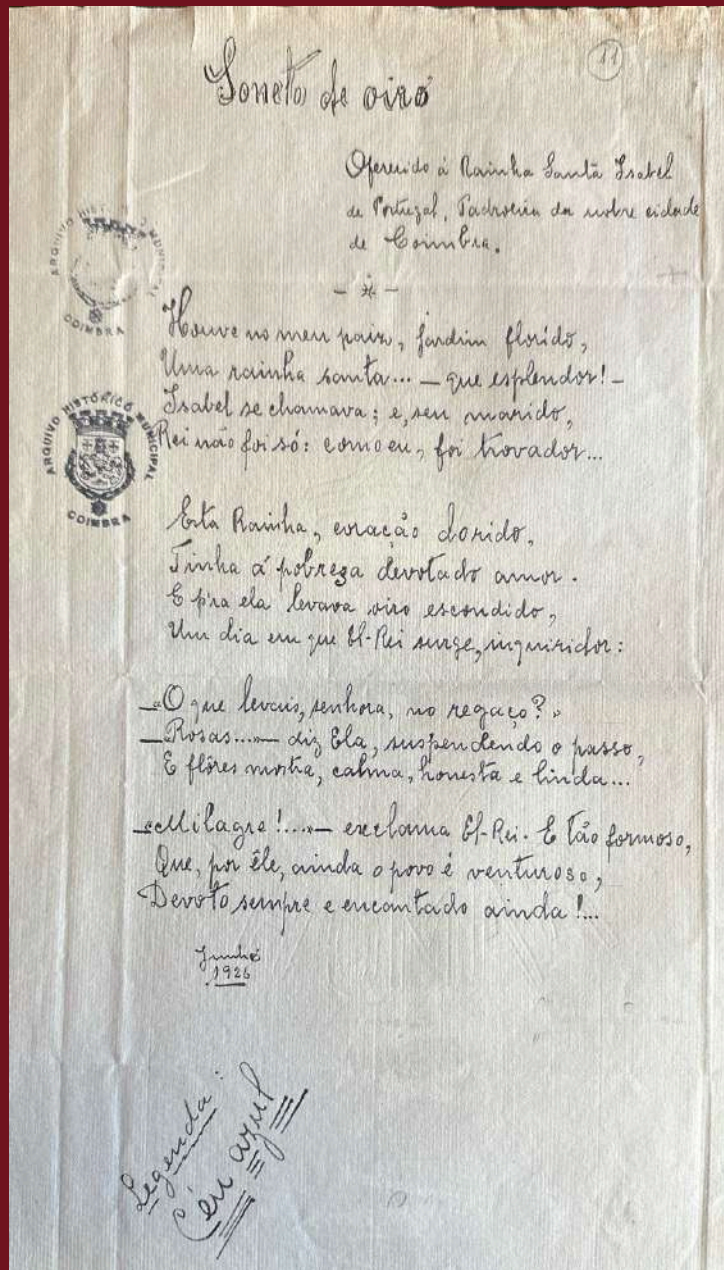 11
Soneto de oiro
Oferecido á Rainha Santa Isabel
de Portugal, Padroeira da nobre cidade
de Coimbra.
ARQUIVO HISTÓRICO MUNICIPAL
COIMBRA
Houve no meu paiz, jardim florido,
Uma rainha santa... — que esplendor! —
Isabel se chamava; e, seu marido,
Rei não foi só: como eu, foi trovador...
ARQUIVO HISTÓRICO MUNICIPAL
COIMBRA
Esta Rainha, coração dorido,
Tinha á pobreza devotado amor.
E p'ra ela levava oiro escondido,
Um dia em que El-Rei surge, inquiridor:
—«O que levais, senhora, no regaço?»
—Rosas...— diz Ela, suspendendo o passo,
E flôres mostra, calma, honesta e linda...
—«Milagre!...»— exclama El-Rei. E tão formoso,
Que, por êle, ainda o povo é venturoso,
Devoto sempre e encantado ainda!...
Junho
1926
Legenda:
Céu azul